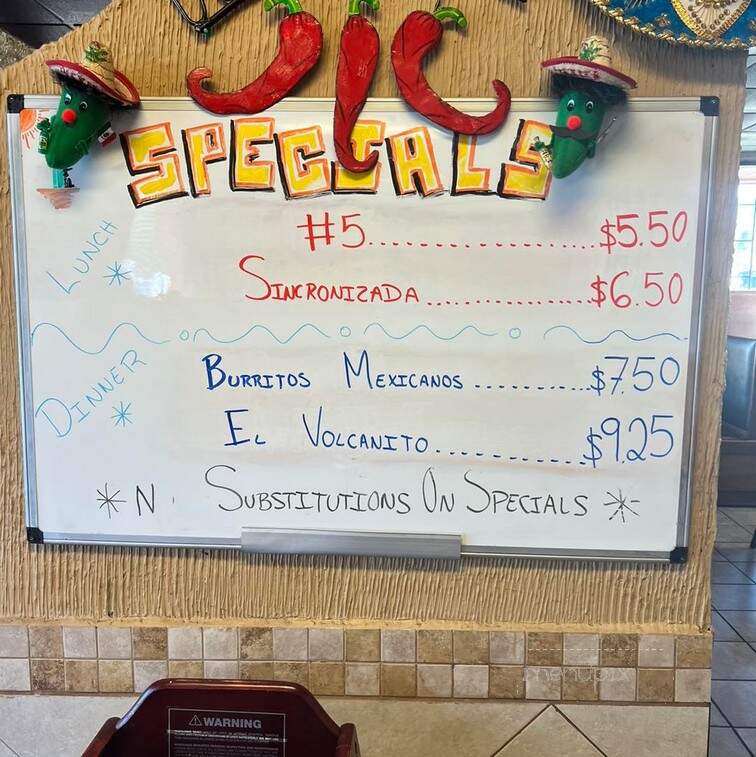 SPECIALS
LUNCH *
#5....................$5.50
SINCRONIZADA................$6.50
DINNER *
BURRITOS MEXICANOS..........$7.50
EL VOLCANITO............$9.25
* N SUBSTITUTIONS ON SPECIALS *
menupix
WARNING